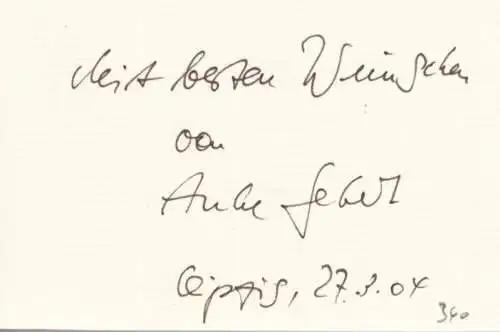 Mit besten Wünschen
von
Anke Gebert
Leipzig, 27.3.04
340